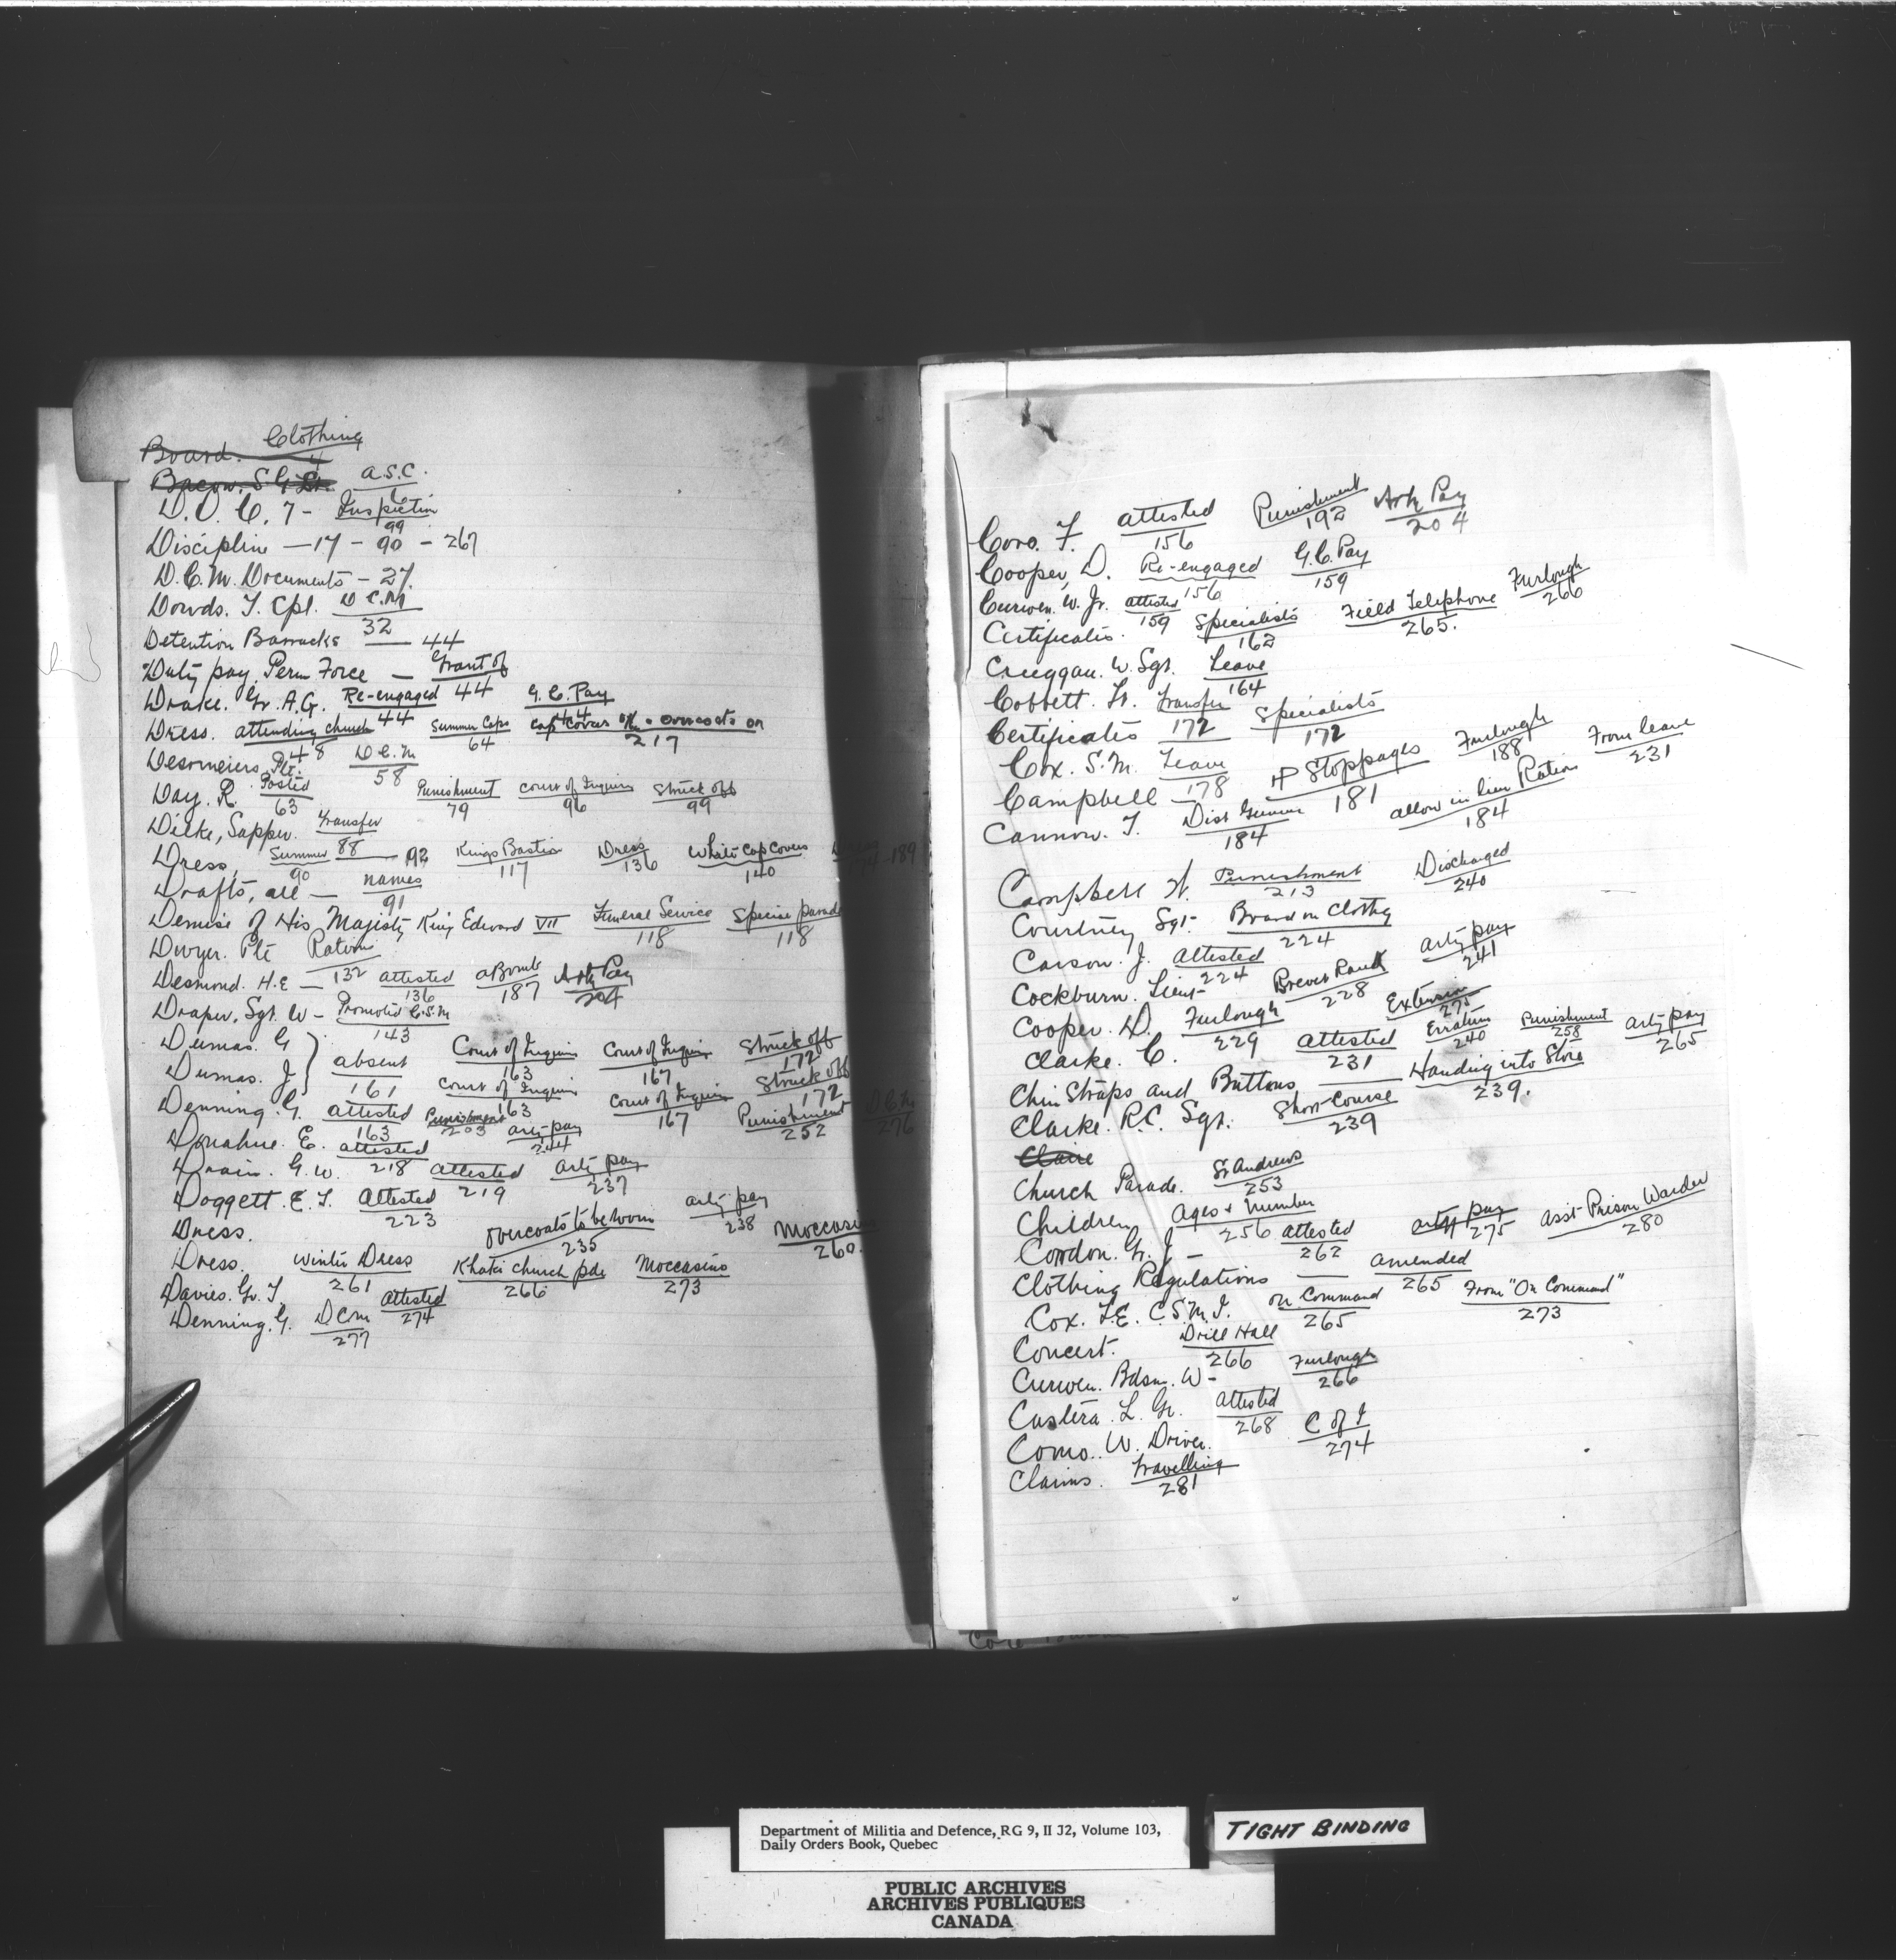 Board. Clothing 4
Bacon. S.G. Lt. A.S.C. 6
D.O.C. 7 - Inspection 99
Discipline — 17 - 90 - 267
D.C.M. Documents - 27.
Dowds. T. Cpl. D.C.M 32
Detention Barracks — 44
Duty pay, Perm Force — Grant of 44
Drake. Gr. A.G. Re-engaged 44 G.C. Pay 44
Dress. attending church 48 Summer Caps 64 Cap Covers off - overcoats on 217
Desormeiers, Pte. D.C.M 58
Day. R. Posted 63 Punishment 79 Court of Inquiry 96 Struck off 99
Dicke, Sapper. Transfer 88
Dress, Summer 90 — 92 Kings Bastion 117 Dress 136 White Cap Covers 140 189
Drafts, all — names 91
Demise of His Majesty King Edward VII Funeral Service 118 Special parade 118
Dwyer. Pte Ration 132
Desmond. H.E — attested 136 a Bomb 187 Arty Pay 204
Draper, Sgt. W - Promoted C.S.M 143
Dumas. G } absent 161 Court of Inquiry 163 Court of Inquiry 167 Struck off 172
Dumas. J } Court of Inquiry 163 Court of Inquiry 167 Struck off 172
Denning. G. attested 163 Punishment 203 arty pay 244 Punishment 252 D.C.M 276
Donahue. E. attested 218
Drain. G.W. attested 219 arty pay 237
Doggett. E.T. Attested 223 arty pay 238
Dress. overcoats to be worn 235 Moccasi 260.
Dress. Winter Dress 261 Khaki Church pde 266 Moccasins 273
Davies. Gr. T. attested 274
Denning. G. DCM 277
Coro. F. attested 156 Punishment 192 Arty Pay 204
Cooper, D. Re-engaged 156 G.C. Pay 159
Curwen. W. Jr. attested 159
Certificates. Specialists 162 Field Telephone 265. Furlough 266
Creggan. W. Sgt. Leave 164
Cobbett. Lt. Transfer 172
Certificates Specialists 172
Cox. S.M. Leave 178
Campbell H Stoppages 181 Furlough 188 From leave 231
Cannon. T. Dist Gunner 184 allow in lieu Ration 184
Campbell H. Punishment 213 Discharged 240
Courtney Sgt. Board on Clothg 224
Carson. J. Attested 224
Cockburn. Lieut- Brevet Rank 228 arty pay 241
Cooper. D. Furlough 229 Extension 275
Clarke. C. attested 231 Erratum 240 Punishment 258 arty pay 265
Chin Straps and Buttons — Handing into Store 239.
Clarke. R.C. Sgt. Short Course 239
Claire
Church Parade. St Andrews 253
Children Ages & Number 256
Condon. Gr. J — attested 262 arty pay 275 Asst Prison Warder 280
Clothing Regulations — amended 265
Cox. F.E. C.S.M.I. on Command 265 From "On Command" 273
Concert. Drill Hall 266
Curwen. Bdsm. W - Furlough 266
Castera. L. Gr. attested 268
Como. W. Driver. C of I 274
Claims. Travelling 281
Department of Militia and Defence, RG 9, II J2, Volume 103,
Daily Orders Book, Quebec
TIGHT BINDING
PUBLIC ARCHIVES
ARCHIVES PUBLIQUES
CANADA